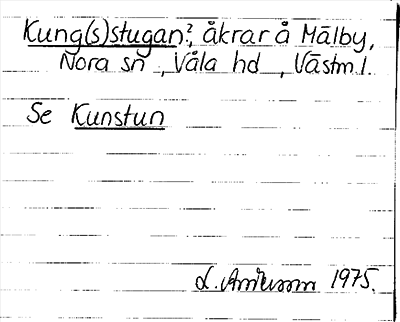 Kung(s)stugan?, åkrar å Mälby,
Nora sn, Våla hd, Västml.
Se Kunstun
L. Andersson 1975.